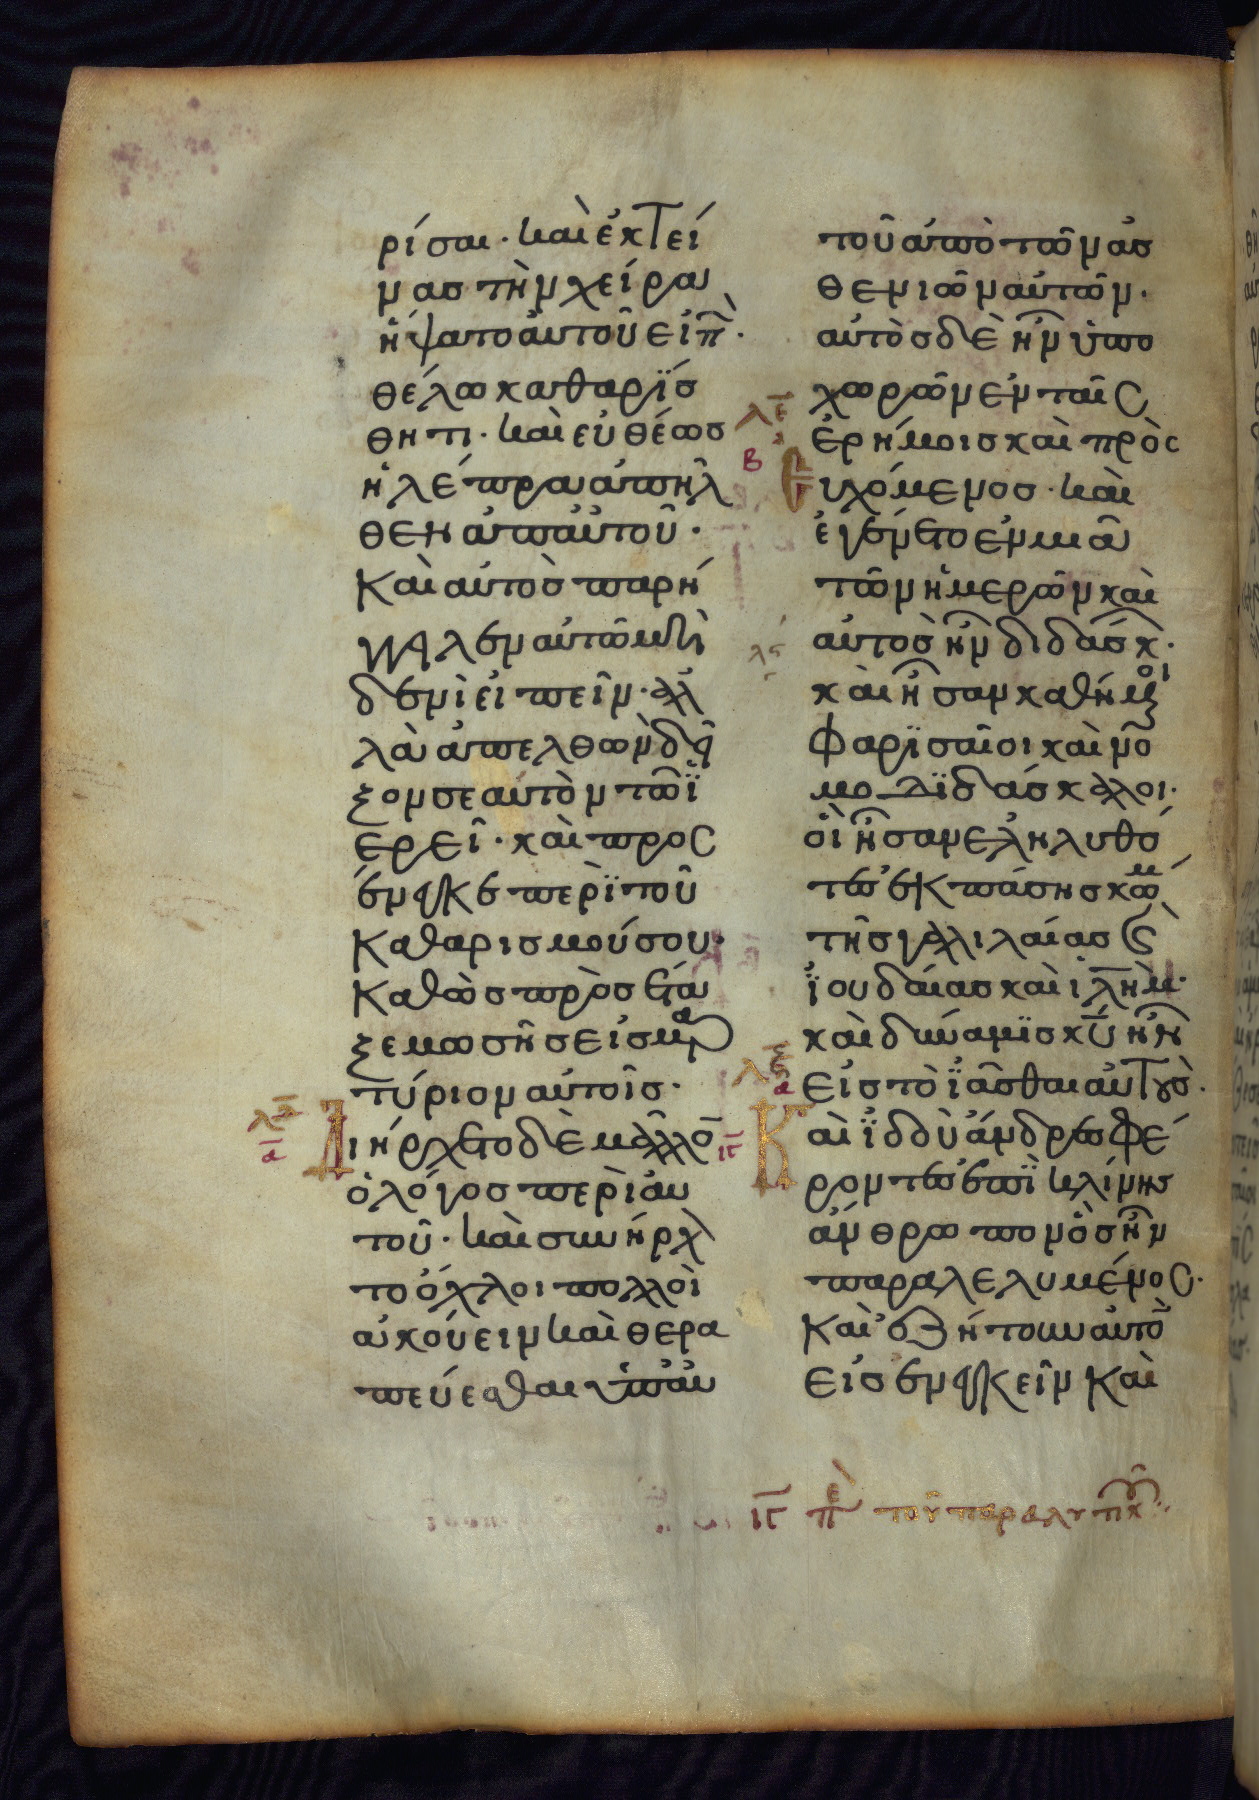 ρίσαι· καὶ ἐκτεί
νας τὴν χείρα
ἥψατο αὐτοῦ εἰπ·
θέλω καθαρϊσ
θητι· καὶ εὐθέως
ἡ λέπρα ἀπῆλ
θεν ἀπ αὐτοῦ·
Καὶ αὐτὸς παρή
γγειλεν αὐτῶ μὴ
δενὶ εἰπεῖν· ἀλ
λὰ ἀπελθὼν δεῖ
ξον σεαυτὸν τῶ ϊ
ερεῖ· καὶ προς
ένεγκε περὶ τοῦ
Καθαρισμού σου·
Καθὼς προσέτα
ξε μωσῆς εἰς μαρ
τύριον αὐτοῖς·
λδ
α
Διήρχετο δὲ μᾶλλο
ὁ λόγος περὶ αυ
τοῦ· καὶ συνήρχ
το όχλοι πολλοὶ
ακούειν καὶ θερα
πεύεσθαι ὑπ αὐ
τοῦ ἀπὸ τῶν ἀσ
θενιῶν αὐτῶν·
αὐτὸς δὲ ἦν ὑπο
χωρῶν ἐν ταῖς
λε
Β
ἐρήμοις καὶ προσ
Ευχόμενος· καὶ
ἐγένετο ἐν μιᾶ
τῶν ἡμερῶν καὶ
λϛ
αὐτὸς ἦν διδάσκ·
καὶ ἦσαν καθήμενοι
Φαρϊσαῖοι καὶ νο
μοδϊδάσκαλοι·
οἱ ἦσαν ἐληλυθό
τες ἐκ πάσης κώμ
τῆς γαλιλαίας ϗ
ϊουδαίας καὶ ἱλημ·
καὶ δύναμϊς κυ ἦν
Εἰς τὸ ϊᾶσθαι αὐτούς·
λζ
α
ιγ
Καὶ ϊδοὺ ἄνδρες φέ
ροντες ἐπὶ κλίνης
ἄνθρωπον ὃς ἦν
παραλελυμένος·
Καὶ ἐζήτουν αὐτο
Εἰσενεγκεῖν Καὶ
ιγ πε τοῦ παραλυτικ